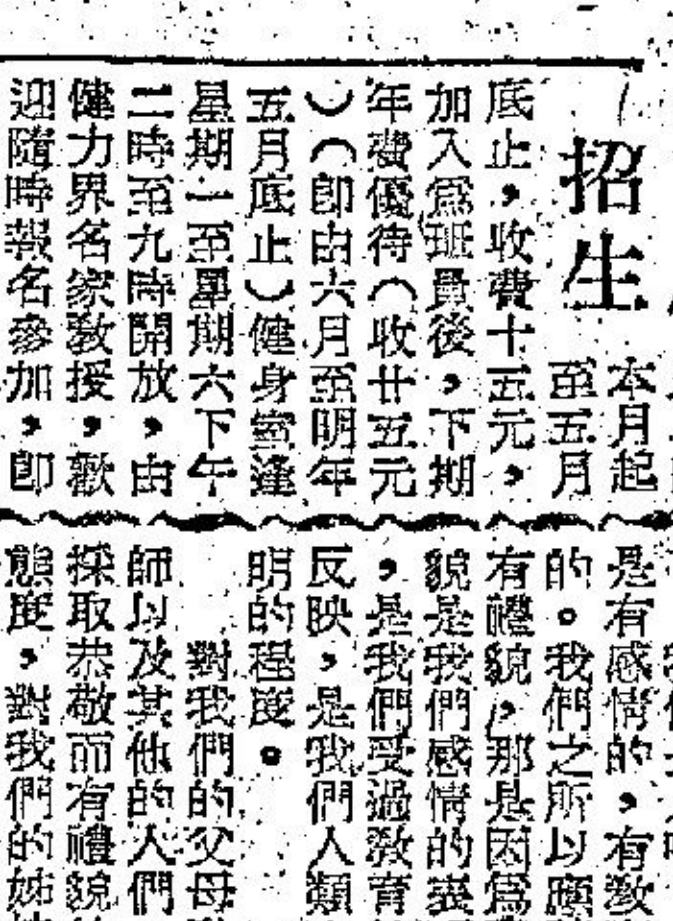 招生
本月起
至五月
底止，收費十五元，
加入爲班員後，下期
年費優待（收廿五元
）（即由六月至明年
五月底止）健身室逢
星期一至星期六下午
二時至九時開放，由
健力界名家敎授，歡
迎隨時報名參加，即
是有感情的，有敎
的。我們之所以應
有禮貌，那是因爲
貌是我們感情的表
，是我們受過敎育
反映，是我們人類
明的程度。
對我們的父母
師以及其他的人們
採取恭敬而有禮貌
態度，對我們的姊